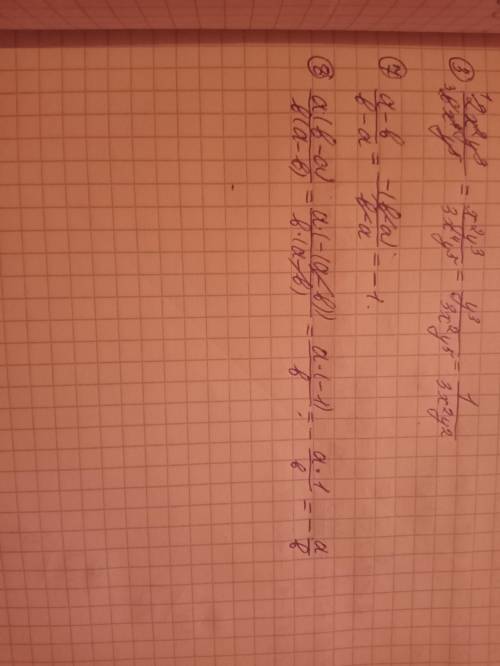 ③ 2x²y³/6x⁴y⁵ = x²y³/3x⁴y⁵ = y³/3x²y⁵ = 1/3x²y²
⑦ a-b/b-a = -(b-a)/b-a = -1.
⑧ a(b-a)/b(a-b) = a·(-(a-b))/b·(a-b) = a·(-1)/b = - a·1/b = - a/b